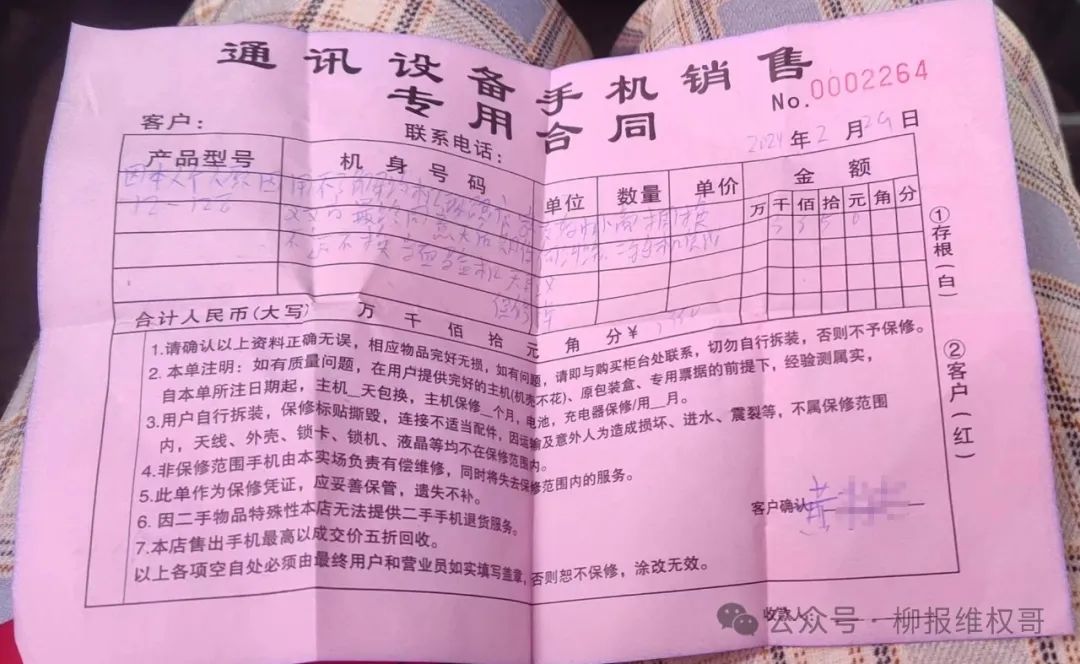 通讯设备手机销售
专用合同
No.0002264
客户：
联系电话：
2024年2月29日
产品型号 机身号码 单位 数量 单价 金额
万 千 佰 拾 元 角 分
12-128
3 3 5 0
合计人民币(大写) 万 千 佰 拾 元 角 分¥
1.请确认以上资料正确无误，相应物品完好无损，如有问题，请即与购买柜台处联系，切勿自行拆装，否则不予保修。
2. 本单注明：如有质量问题，在用户提供完好的主机(机壳不花)、原包装盒、专用票据的前提下，经验测属实，
自本单所注日期起，主机__天包换，主机保修__个月，电池，充电器保修/用__月。
3.用户自行拆装，保修标贴撕毁，连接不适当配件，因运输及意外人为造成损坏、进水、震裂等，不属保修范围
内，天线、外壳、锁卡、锁机、液晶等均不在保修范围内。
4.非保修范围手机由本实场负责有偿维修，同时将失去保修范围内的服务。
5.此单作为保修凭证，应妥善保管，遗失不补。
6. 因二手物品特殊性本店无法提供二手手机退货服务。
7.本店售出手机最高以成交价五折回收。
以上各项空自处必须由最终用户和营业员如实填写盖章，否则恕不保修，涂改无效。
客户确认 黄
收款人：
①存根(白)
②客户(红)
公众号·柳报维权哥